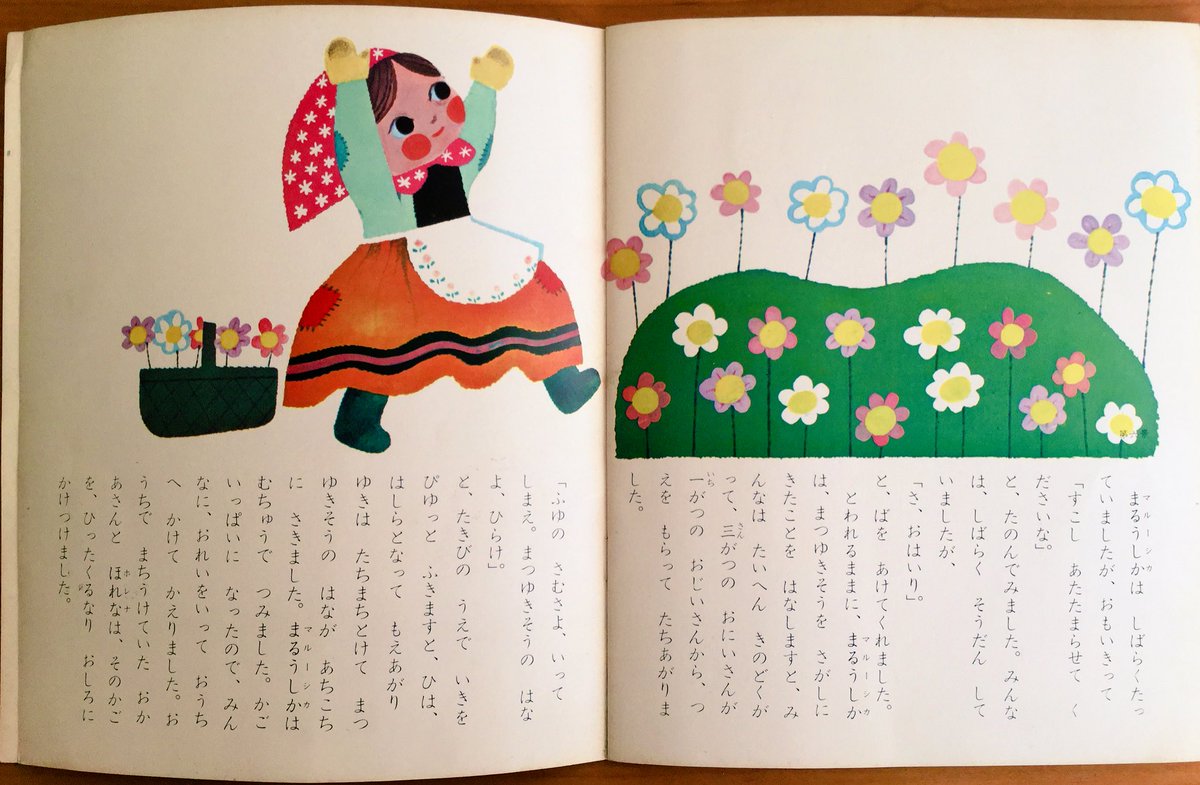 まるうしかは　しばらくたっ
マルーシカ
ていましたが、おもいきって
「すこし　あたたまらせて　く
ださいな」
と、たのんでみました。みんな
は、しばらく　そうだん　して
いましたが、
「さ、おはいり」。
と、ばを　あけてくれました。
とわれるままに、まるうしか
マルーシカ
は、まつゆきそうを　さがしに
きたことを　はなしますと、み
んなは　たいへん　きのどくが
って、三がつの　おにいさんが
さん
一がつの　おじいさんから、つ
いち
えを　もらって　たちあがりま
した。
第六景
「ふゆの　さむさよ、いって
しまえ。まつゆきそうの　はな
よ、ひらけ」。
と、たきびの　うえで　いきを
ぴゆっと　ふきますと、ひは、
はしらとなって　もえあがり
ゆきは　たちまちとけて　まつ
ゆきそうの　はなが　あちこち
に　さきました。まるうしかは
マルーシカ
むちゅうで　つみました。かご
いっぱいに　なったので、みん
なに、おれいをいって　おうち
へ　かけて　かえりました。お
うちで　まちうけていた　おか
あさんと　ほれなは、そのかご
ホレナ
を、ひったくるなり　おしろに
かけつけました。